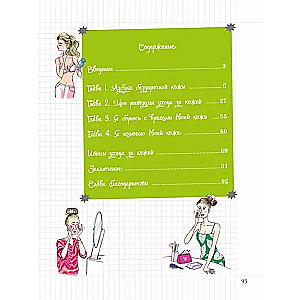 Содержание
Введение 3
Глава 1. Азбука безупречной кожи 6
Глава 2. Три ритуала ухода за кожей 27
Глава 3. Я борюсь с врагами моей кожи 55
Глава 4. Я помогаю своей коже 69
Итоги ухода за кожей 89
Заключение 91
Слова благодарности 92
93